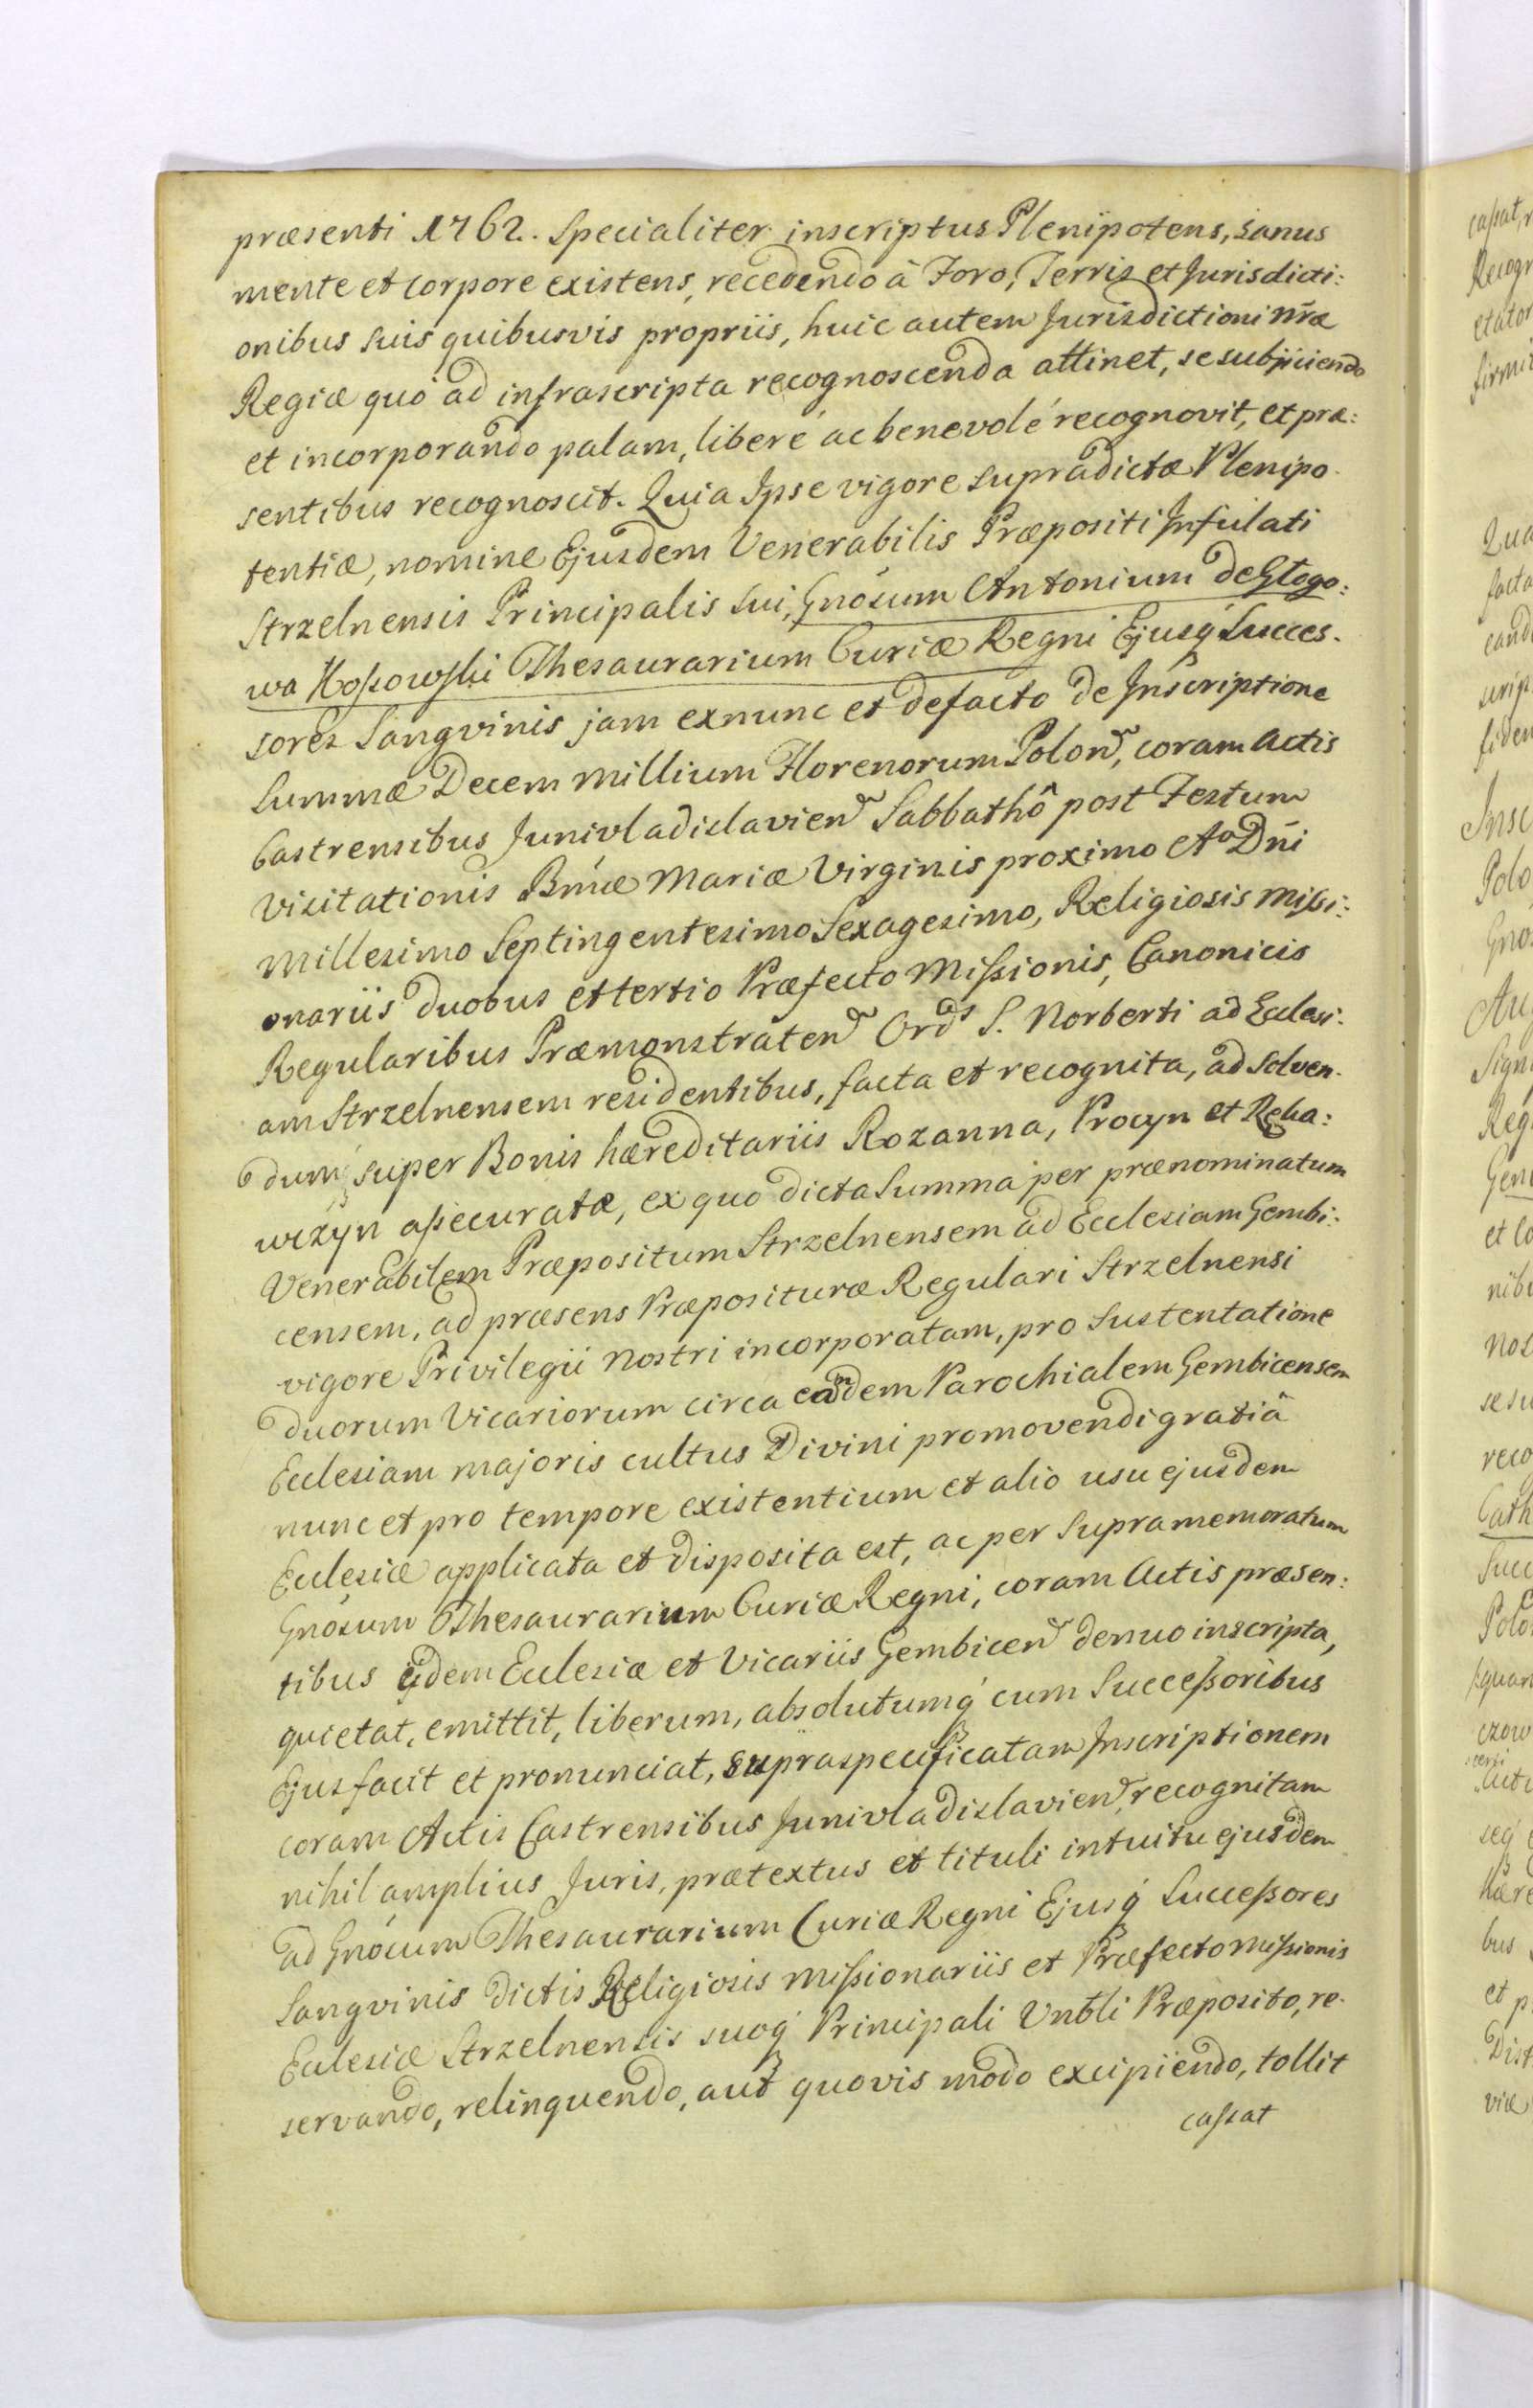 præsenti 1762. Specialiter inscriptus Plenipotens, sanus
mente et corpore existens, recedendo â Foro, Terris et Jurisdicti:
onibus suis quibusvis propriis, huic autem Jurisdictioni nr̃æ
Regiæ quó ad infrascripta recognoscenda attinet, se subjiciendo
et incorporando palam, liberé ac benevolé recognovit, et præ:
sentibus recognoscit. Quia Ipse vigore supradictæ Plenipo-
tentiæ, nomine Ejusdem Venerabilis Præpositi Infulati
Strzelnensis Principalis sui, Gnosum Antonium de Glogo:
wa Kossowski Thesaurarium Curiæ Regni Ejusq́ Succes-
sores Sangvinis jam exnunc et defacto de Inscriptione
Summæ Decem Millium Florenorum Polon̄, coram Actis
Castrensibus Junivladislavien̄ Sabbathô post Festum
Visitationis Bm̃æ Mariæ Virginis proximo Aº Dn̄i
Millesimo Septingentesimo Sexagesimo, Religiosis Missi:
onariis duobus et tertio Præfecto Missionis, Canonicis
Regularibus Præmonstraten̄ Ordīs S. Norberti ad Eccles:
am Strzelnensem residentibus, facta et recognita, ad solven-
dumq́ super Bonis hæreditariis Rozanna, Procyn et Reha:
wizyn assecuratæ, ex quo dicta Summa per prænominatum
Venerabilem Præpositum Strzelnensem ad Ecclesiam Gembi:
censem, ad præsens Præposituræ Regulari Strzelnensi
vigore Privilegii Nostri incorporatam, pro sustentatione
duorum Vicariorum circa eandem Parochialem Gembicensem
Ecclesiam majoris cultus Divini promovendi gratiâ
nunc et pro tempore existentium et alio usu ejusdem
Ecclesiæ applicata et disposita est, ac per supramemoratum
Gnosum Thesaurarium Curiæ Regni, coram Actis præsen:
tibus ijdem Ecclesiæ et Vicariis Gembicen̄ denuo inscripta,
quietat, emittit, liberum, absolutumq́ cum Successoribus
Ejus facit et pronunciat, supraspecificatam Inscriptionem
coram Actis Castrensibus Junivladislavien̄, recognitam
nihil amplius Juris, prætextus et tituli intuitu ejusdem
ad Gnosum Thesaurarium Curiæ Regni Ejusq́ Successores
Sangvinis dictis Religiosis Missionariis et Præfecto Missionis
Ecclesiæ Strzelnensis suoq́ Principali Vnb̄li Præposito, re-
servando, relinquendo, aut quovis modo excipiendo, tollit
cassat